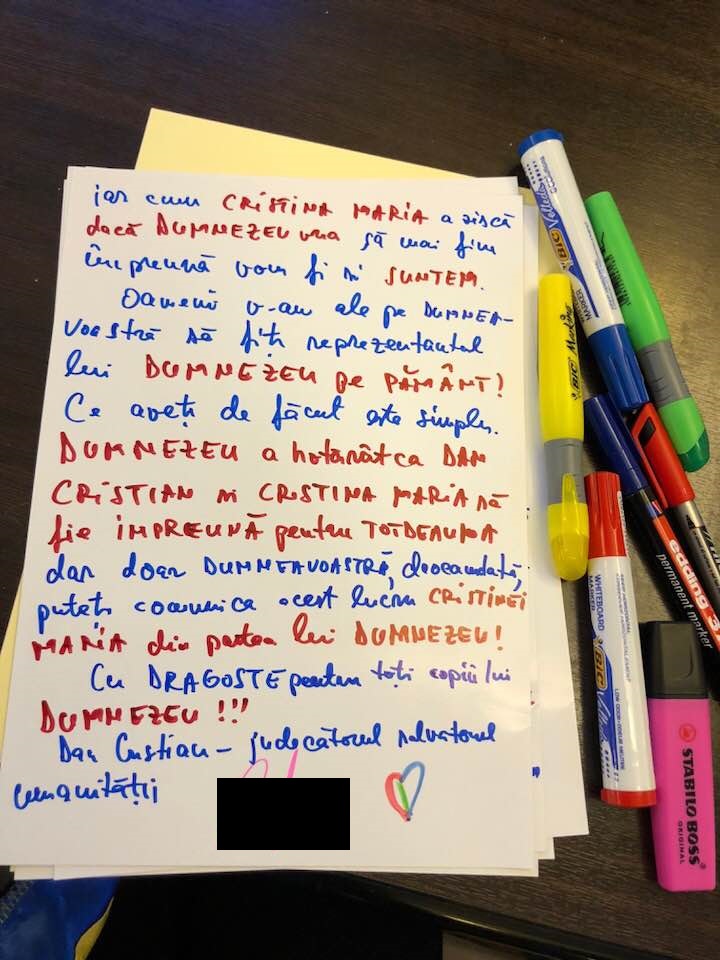 iar cum CRISTINA MARIA a zis că
dacă DUMNEZEU vrea să mai fim
împreună vom fi și SUNTEM.
Oamenii v-au ales pe DUMNEA-
VOASTRĂ să fiți reprezentantul
lui DUMNEZEU pe PĂMÂNT!
Ce aveți de făcut este simplu.
DUMNEZEU a hotărât ca DAN
CRISTIAN și CRISTINA MARIA să
fie ÎMPREUNĂ pentru TOTDEAUNA
dar doar DUMNEAVOASTRĂ, deocamdată,
puteți comunica acest lucru CRISTINEI
MARIA din partea lui DUMNEZEU!
Cu DRAGOSTE pentru toți copiii lui
DUMNEZEU !!!
Dan Cristian – judecătorul salvatorul
umanității
BIC Velleda
MARKER
BIC Marking
WHITEBOARD
MARKER
BIC Velleda
edding
permanent marker
STABILO BOSS
ORIGINAL